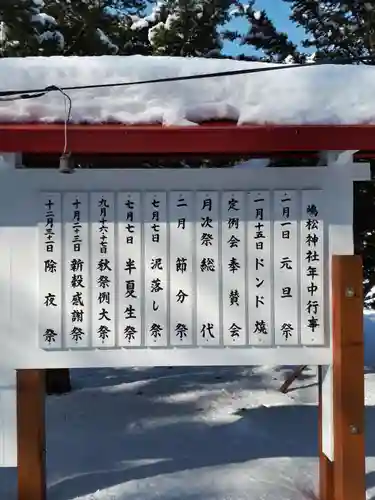 鳩松神社年中行事
一月一日 元旦祭
一月十五日 ドンド燒
定例会 奉賛会
月次祭 総代
二月 節分祭
七月七日 泥落し祭
七月七日 半夏生祭
九月十六十七日 秋祭例大祭
十月二十三日 新穀感謝祭
十二月三十一日 除夜祭